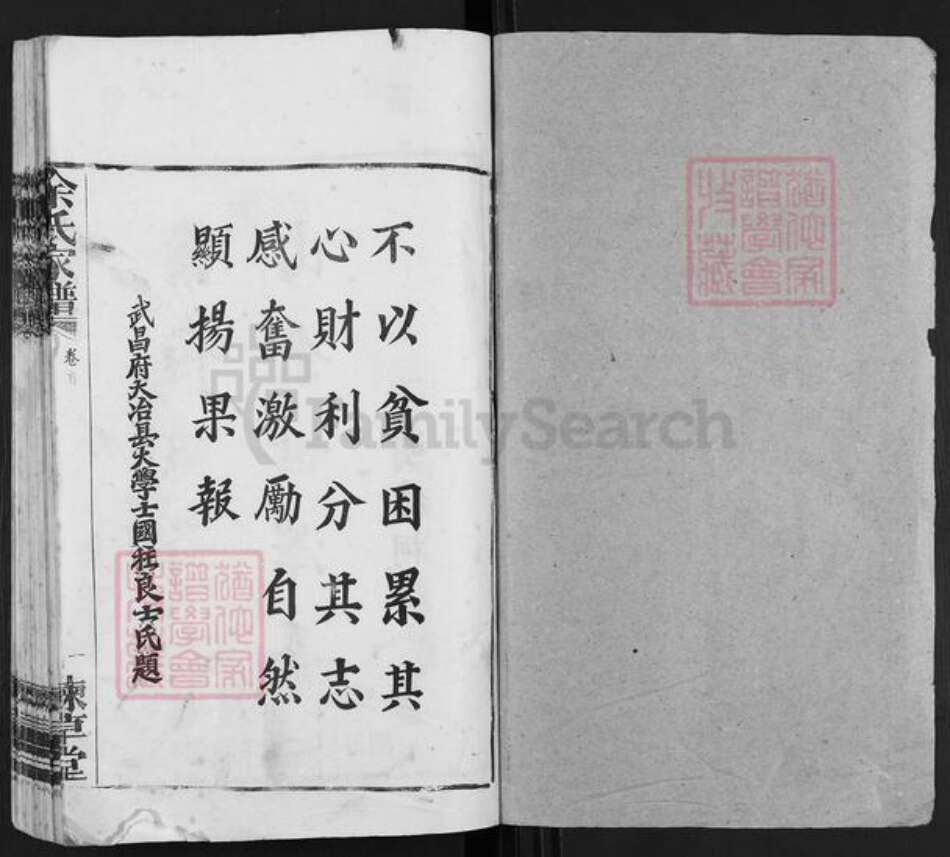 猶他家
譜學會
收藏
不以貧困累其
心財利分其志
感奮激勵自然
顯揚果報
武昌府大冶县大學士國柱良士氏題
猶他家
譜學會
收藏
余氏家譜
卷首
一
諫草堂
FamilySearch